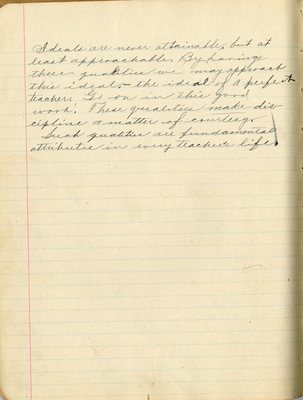 Ideals are never attainable, but at
least approachable. By having
these qualities we may approach
this ideal, - the ideal of a perfect
teacher. Go on in this good
work! These qualities make dis-
cipline a matter of courtesy.
Such qualities are fundamental
attributes in every teacher's life.